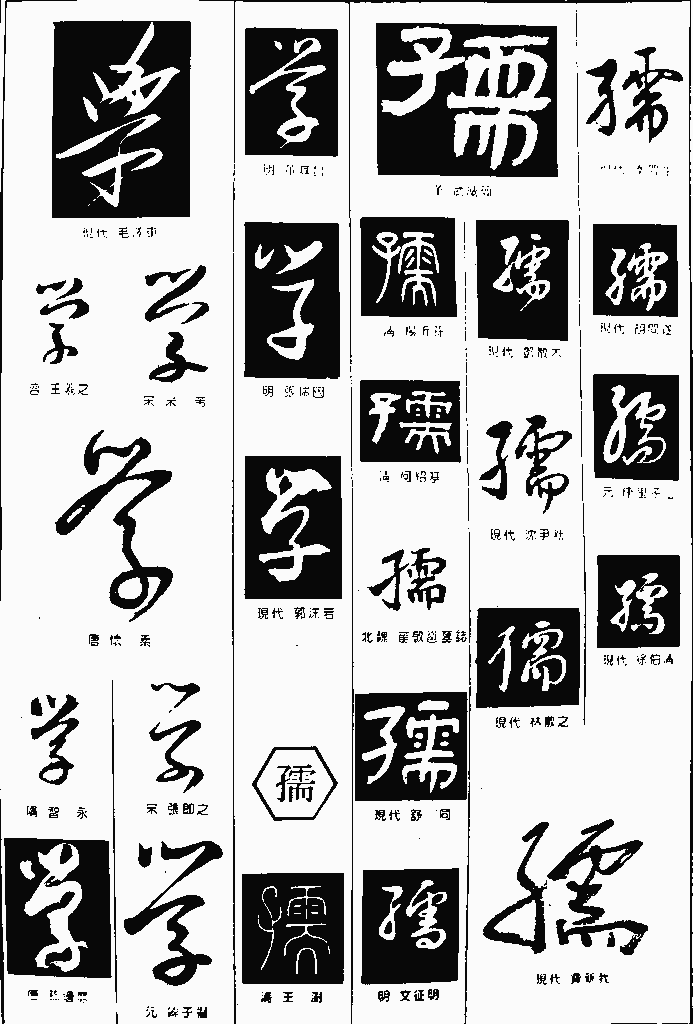 學
現代 毛澤東
學
晉 王羲之
學
宋 米 芾
學
唐 懷 素
學
隋 智 永
學
宋 張即之
學
唐 孫過庭
學
元 鮮于樞
學
學
明 張瑞圖
學
現代 郭沫若
孺
孺
清 王 澍
孺
孺
清 楊沂孫
孺
清 何紹基
孺
北魏
孺
現代 舒 同
孺
明 文征明
孺
現代 鄧散木
孺
現代 沈尹默
孺
現代 林散之
孺
孺
現代 胡問遂
孺
孺
現代 徐伯清
孺
現代